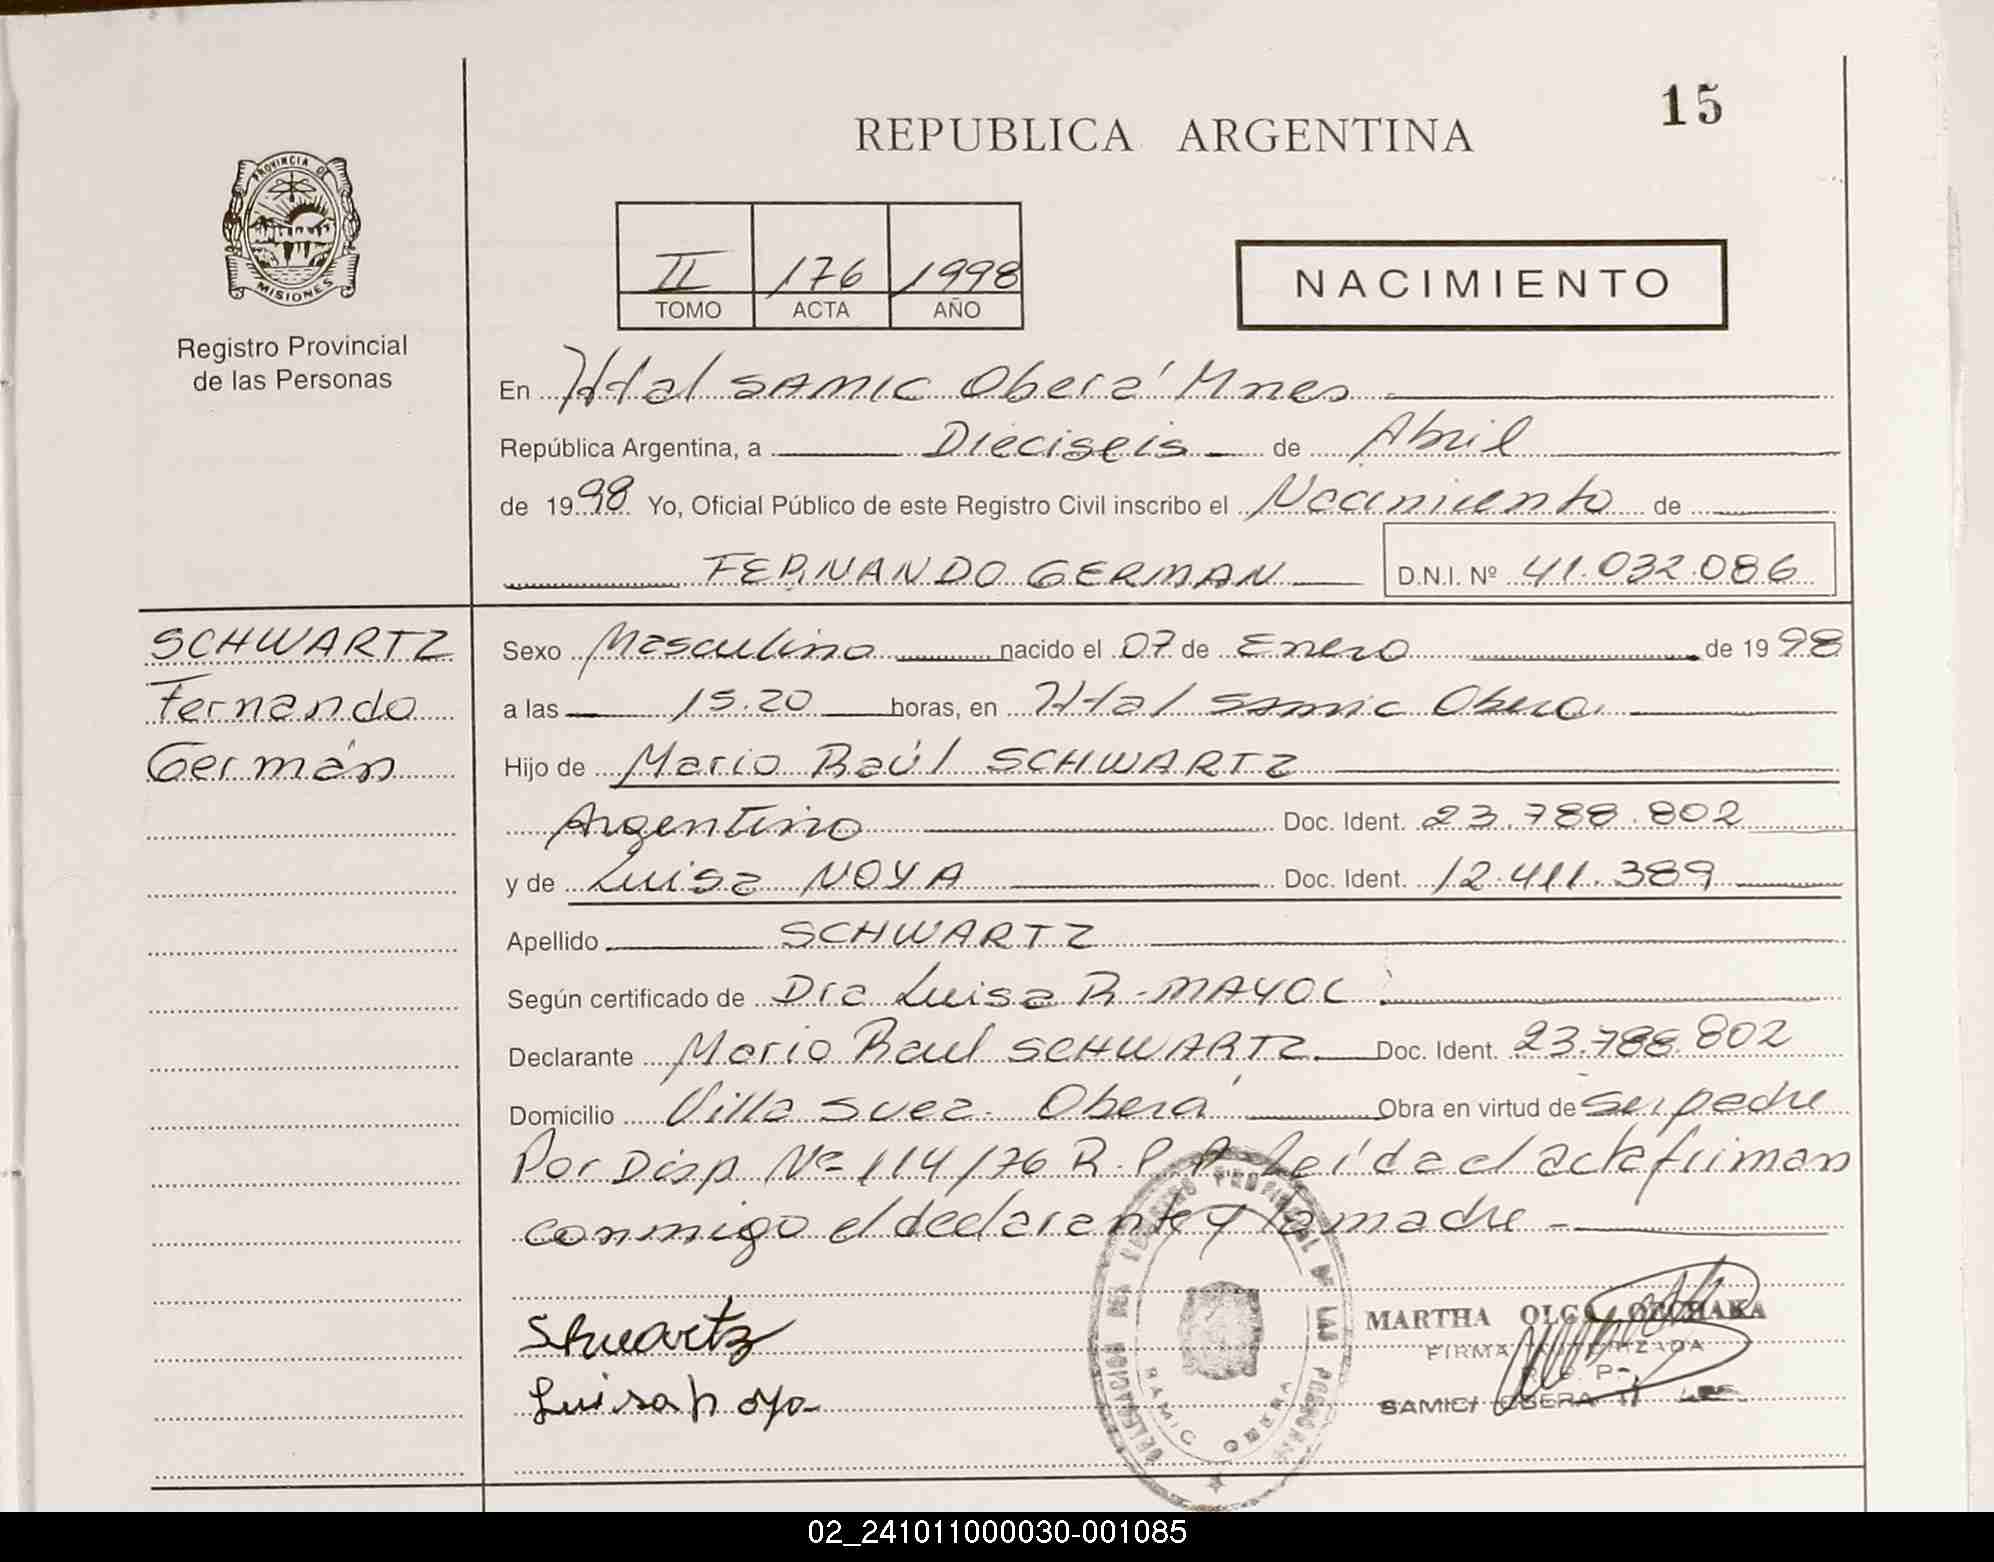 15
REPUBLICA ARGENTINA
PROVINCIA DE
MISIONES
Registro Provincial
de las Personas
II 176 1998
TOMO ACTA AÑO
NACIMIENTO
En Htal SAMIC Oberá Mnes
República Argentina, a Dieciseis de Abril
de 1998 Yo, Oficial Público de este Registro Civil inscribo el Nacimiento de
FERNANDO GERMAN D.N.I. Nº 41.032.086
SCHWARTZ
Fernando
Germán
Sexo Masculino nacido el 07 de Enero de 1998
a las 15.20 horas, en Htal SAMIC Obera
Hijo de Mario Raúl SCHWARTZ
Argentino Doc. Ident. 23.788.802
y de Luisa NOYA Doc. Ident. 12.411.389
Apellido SCHWARTZ
Según certificado de Dra Luisa R. MAYOL
Declarante Mario Raul SCHWARTZ Doc. Ident. 23.788.802
Domicilio Villa Suez. Oberá Obra en virtud de ser padre
Por Disp Nº 114/76 R.P.P Leída el acta firman
conmigo el declarante y la madre
Shwartz
Luisa Noya
DELEGACION DEL REGISTRO PROVINCIAL DE LAS PERSONAS
SAMIC OBERA
MARTHA OLGA
FIRMA AUTORIZADA
SAMIC OBERA
02_241011000030-001085